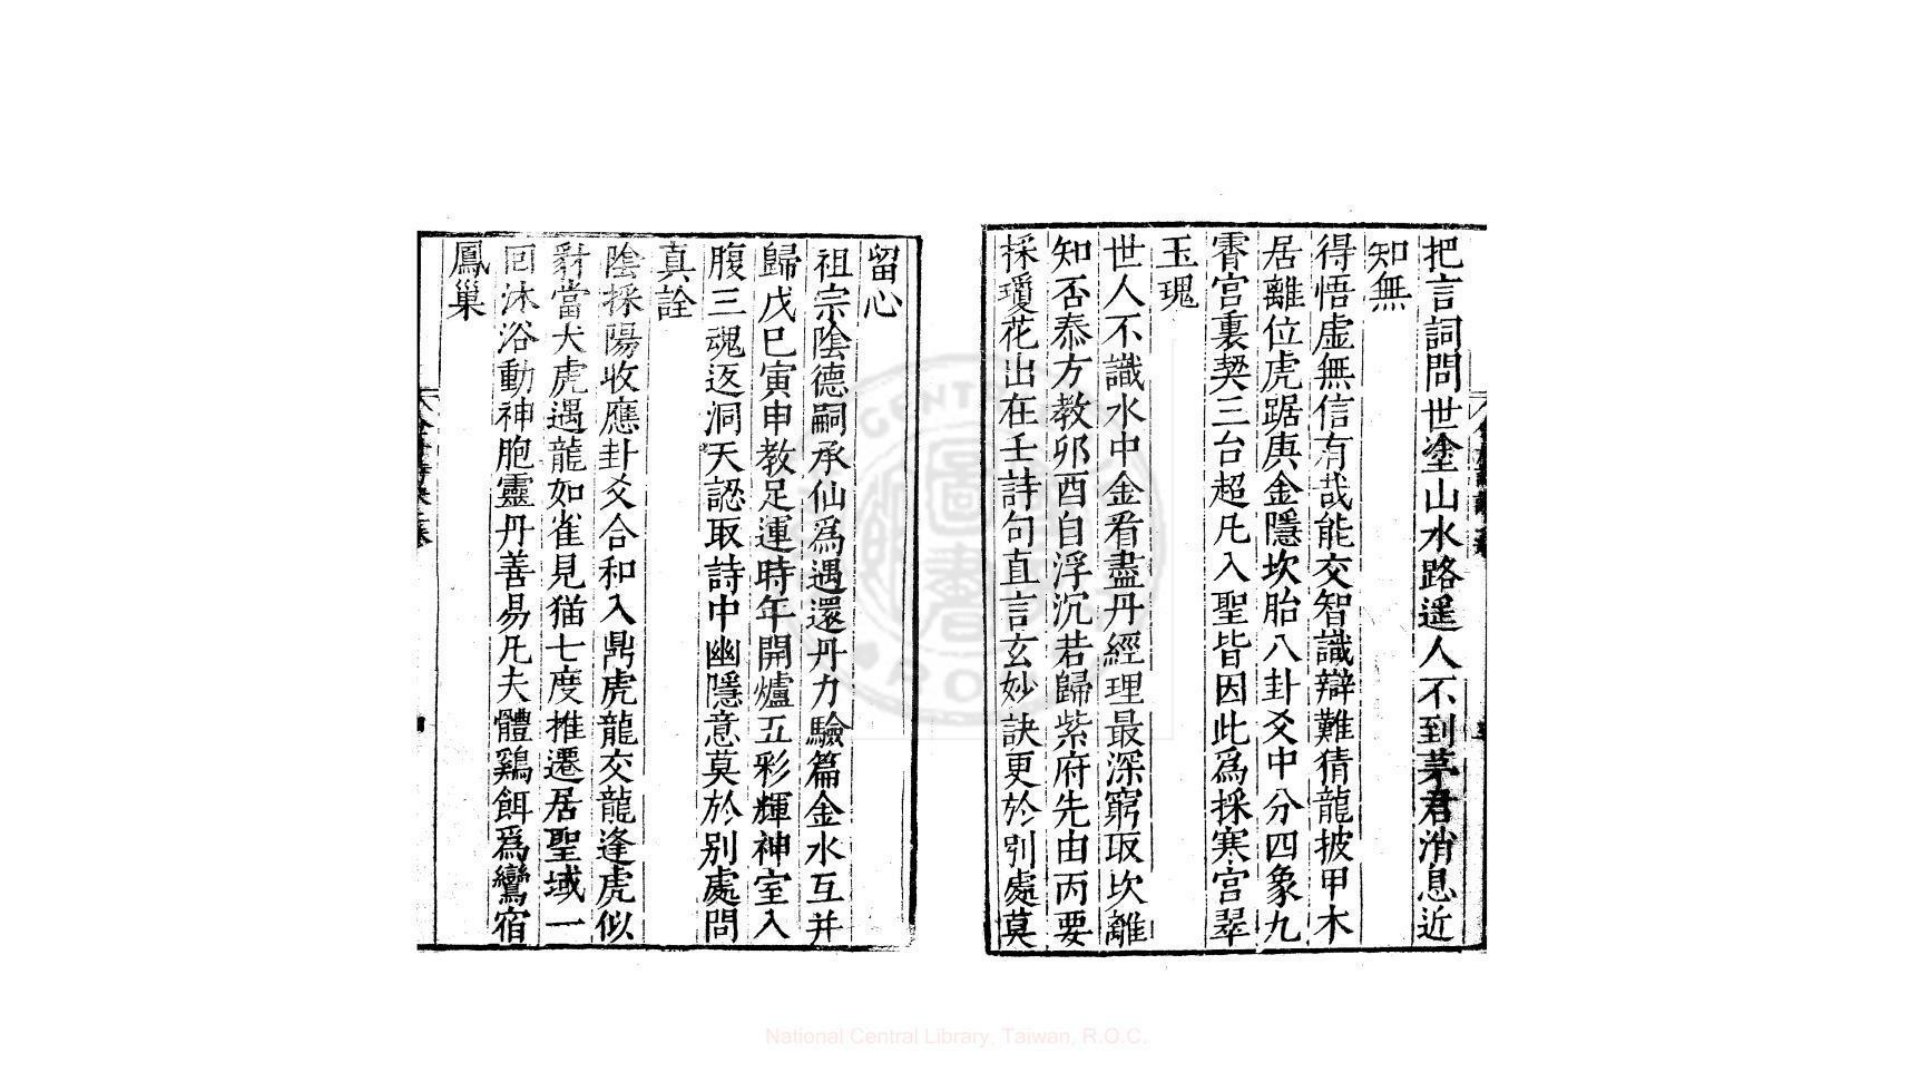 把言詞問世塗山水路遥人不到茅君消息近
知無
得悟虚無信有哉能交智識辯難猜龍披甲木
居離位虎踞庚金隱坎胎八卦爻中分四象九
霄宫裏契三台超凡入聖皆因此爲採寒宫翠
玉瑰
世人不識水中金看盡丹經理最深窮取坎離
知否泰方教卯酉自浮沉若歸紫府先由丙要
採瓊花出在壬詩句直言玄妙訣更於别處莫
留心
祖宗陰德嗣承仙爲遇還丹力驗篇金水互并
歸戊巳寅申教足運時年開爐五彩輝神室入
腹三魂返洞天認取詩中幽隱意莫於别處問
真詮
陰採陽收應卦爻合和入鼎虎龍交龍逢虎似
豺當犬虎遇龍如雀見猫七度推遷居聖域一
回沐浴動神胞靈丹善易凡夫體鷄餌爲鸞宿
鳳巢
National Central Library, Taiwan, R.O.C.